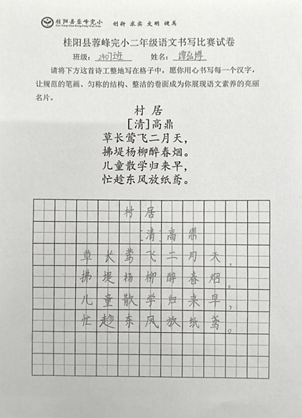 桂阳县蓉峰完小 创新 求实 文明 健美
桂阳县蓉峰完小二年级语文书写比赛试卷
班级： 姓名：
请将下方这首诗工整地写在格子中，愿你用心书写每一个汉字，
让规范的笔画、匀称的结构、整洁的卷面成为你展现语文素养的亮丽
名片。
村 居
[清]高鼎
草长莺飞二月天，
拂堤杨柳醉春烟。
儿童散学归来早，
忙趁东风放纸鸢。
村 居
[清]高鼎
草长莺飞二月天，
拂堤杨柳醉春烟。
儿童散学归来早，
忙趁东风放纸鸢。